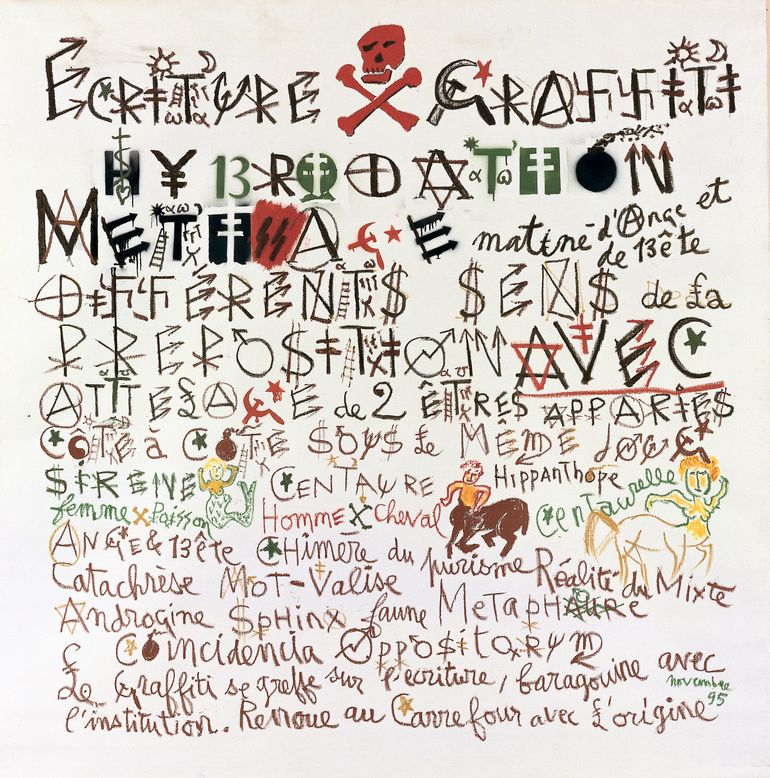 ECRITURE GRAFFITI
HY13RIDATION
METISSAGE matiné d'Ange et
de 13ête
DIFFÉRENTS SENS de la
PREPOSITION AVEC
ATTELAGE de 2 ÊTRES APPARIES
CÔTE à CÔTE SOUS le MÊME JOUG
SIRENE CENTAURE HIPPANTHOPE Centaurelle
femme X Poisson HOMME X Cheval
ANGE & 13ête CHIMERE du purisme Réalité du Mixte
Catachrèse MOT-VALISE
Androgine SpHinx faune
Coincidencia OppositORUM
Le Graffiti se greffe sur l'écriture, baragouine avec
novembre
95
l'institution. Renoue au Carrefour avec l'origine